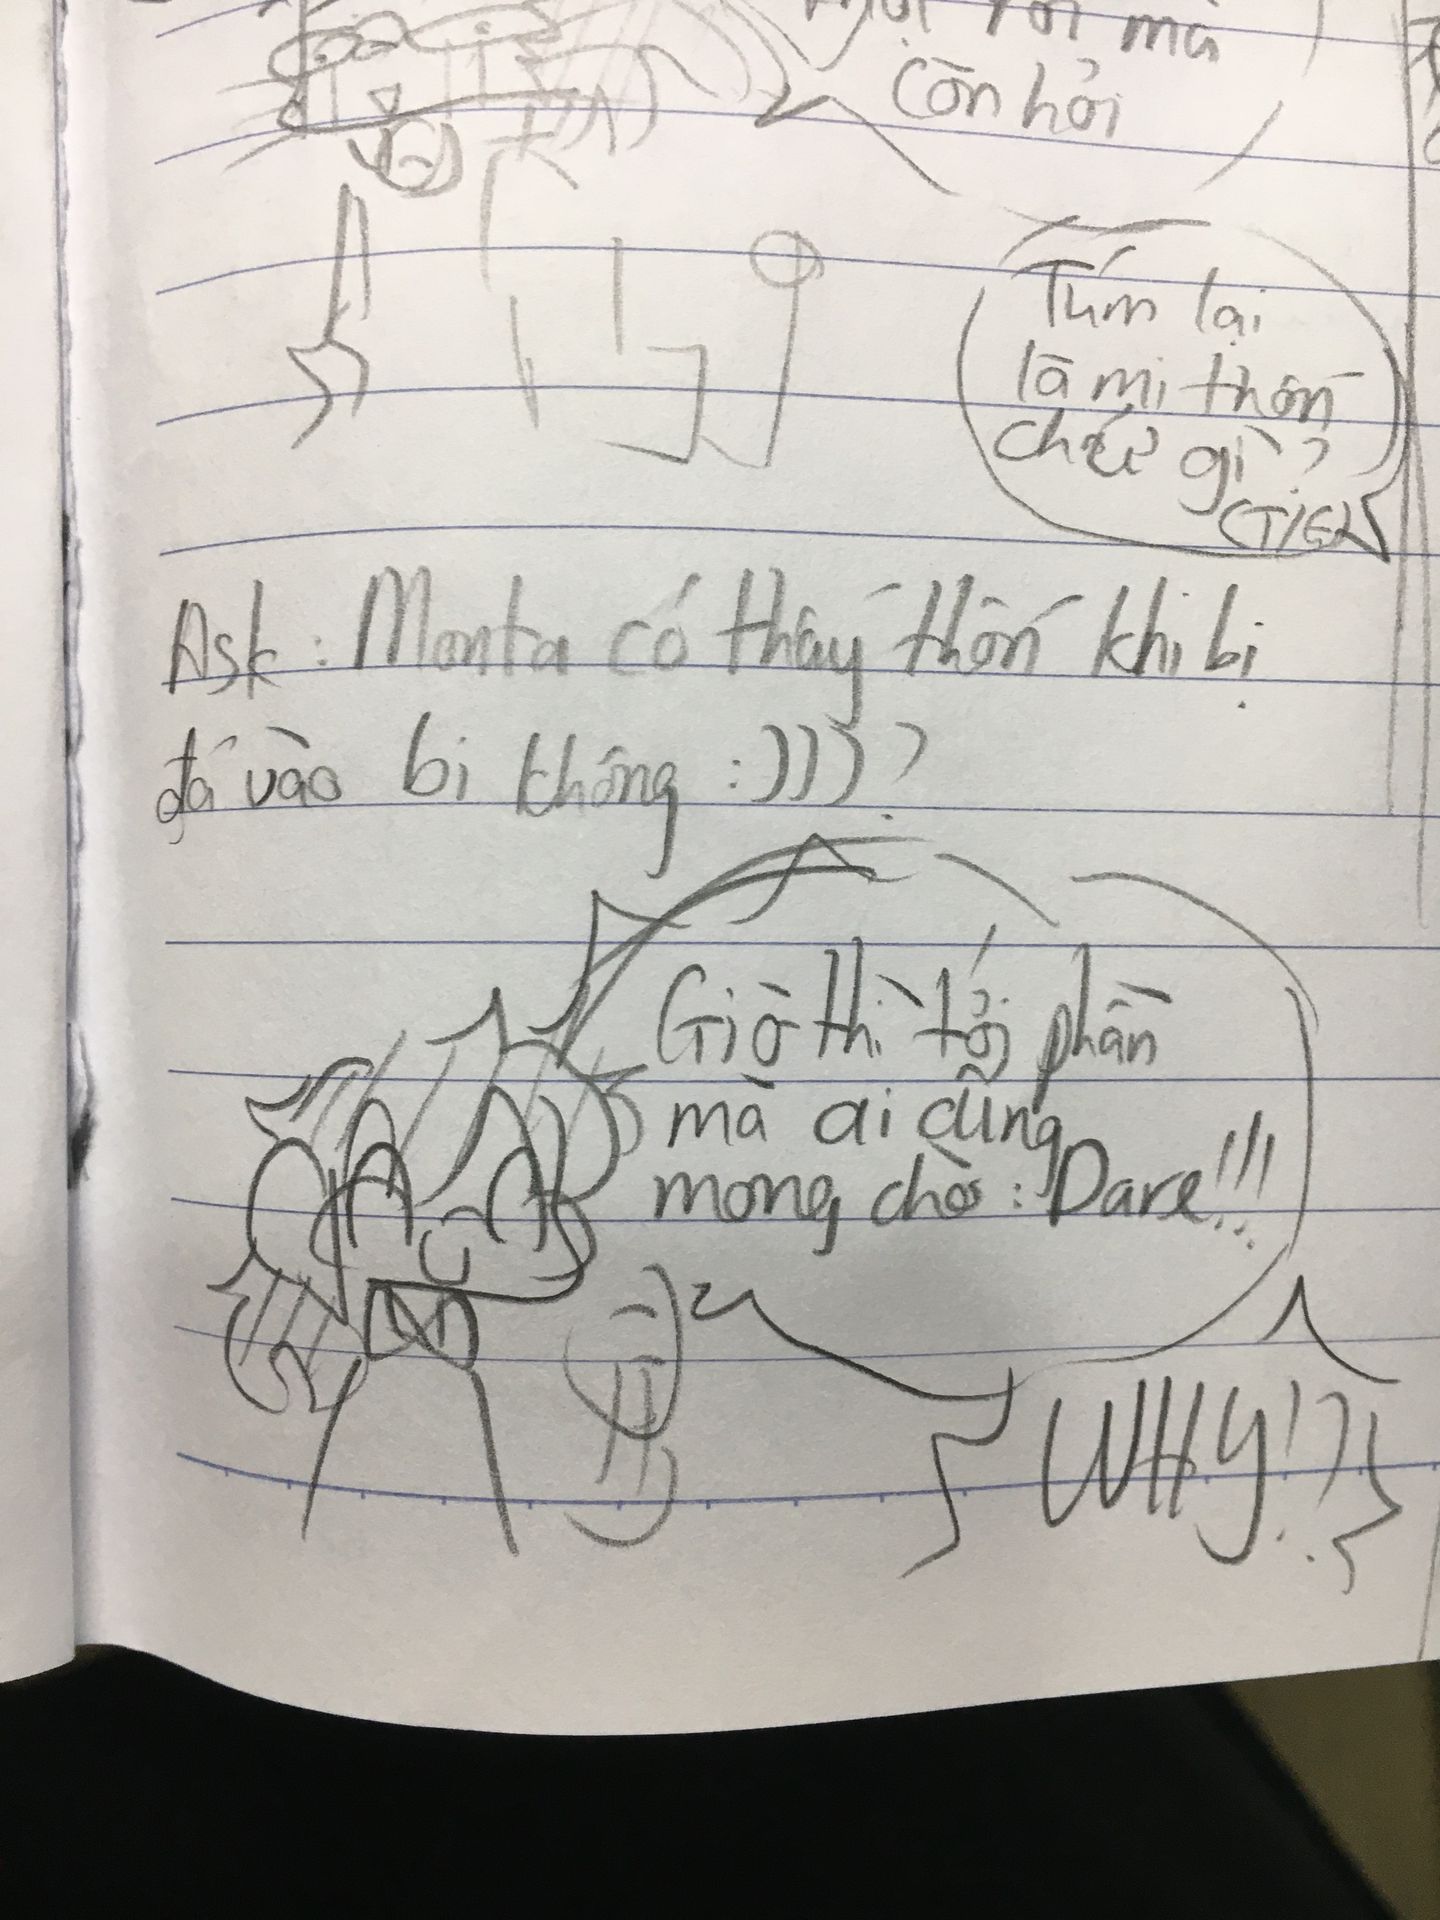 rồi mà
còn hỏi
Túm lại
là mi thốn
chứ gì?
(T/G)
Ask: Monta có thấy thốn khi bị
đá vào bi không :))))?
Giờ thì tới phần
mà ai cũng
mong chờ: Dare!!!
WHY!?